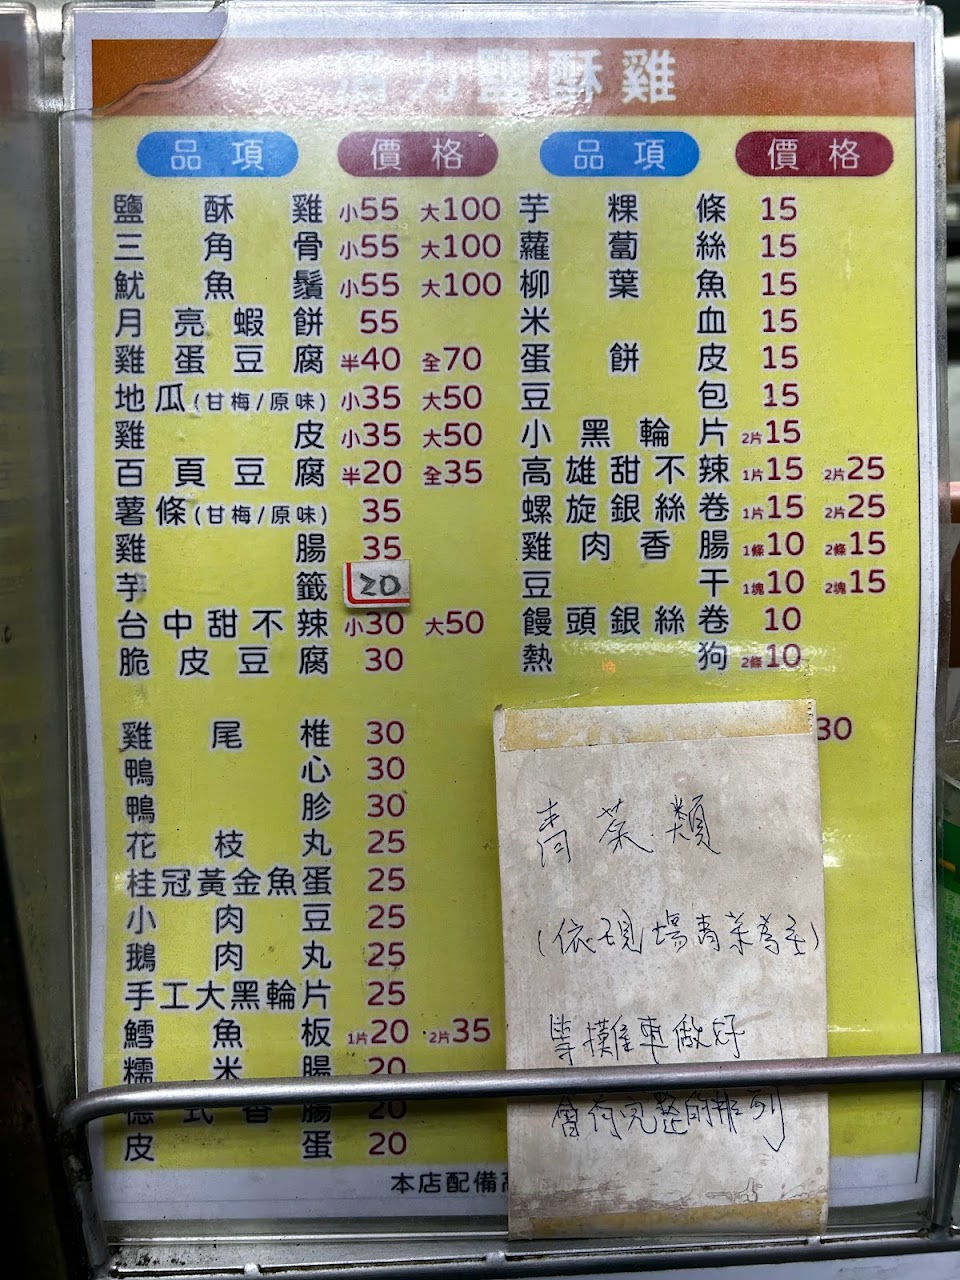 力鹽酥雞
品項 價格
鹽酥雞 小55 大100
三角骨 小55 大100
魷魚鬚 小55 大100
月亮蝦餅 55
雞蛋豆腐 半40 全70
地瓜(甘梅/原味) 小35 大50
雞皮 小35 大50
百頁豆腐 半20 全35
薯條(甘梅/原味) 35
雞腸 35
芋籤 20
台中甜不辣 小30 大50
脆皮豆腐 30
雞尾椎 30
鴨心 30
鴨胗 30
花枝丸 25
桂冠黃金魚蛋 25
小肉豆 25
鵝肉丸 25
手工大黑輪片 25
鱈魚板 1片20 2片35
糯米腸 20
德式香腸 20
皮蛋 20
品項 價格
芋粿條 15
蘿蔔絲 15
柳葉魚 15
米血 15
蛋餅皮 15
豆包 15
小黑輪片 2片15
高雄甜不辣 1片15 2片25
螺旋銀絲卷 1片15 2片25
雞肉香腸 1條10 2條15
豆干 1塊10 2塊15
饅頭銀絲卷 10
熱狗 2條10
30
青菜類
(依現場青菜為主)
等攤車做好
會有完整的排列
本店配備